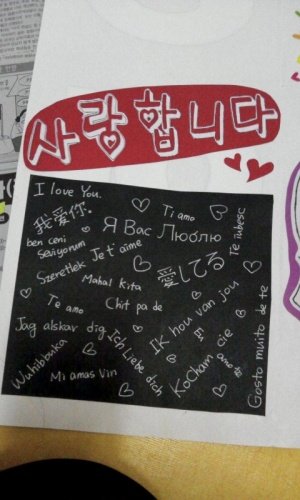 사랑합니다
I love You.
我爱你.
Ti amo
Te iubesc
Я Вас Люблю
ben seni
seviyorum
Je t'aime
愛してる
Szeretlek
Mahal kita
Te amo
Chit pa de
IK hou van jou
Jag alskar dig
Ich Liebe dich
Kocham cie
Eu amo ti
Wuhibbuka
Mi amas vin
Gosto muito de te